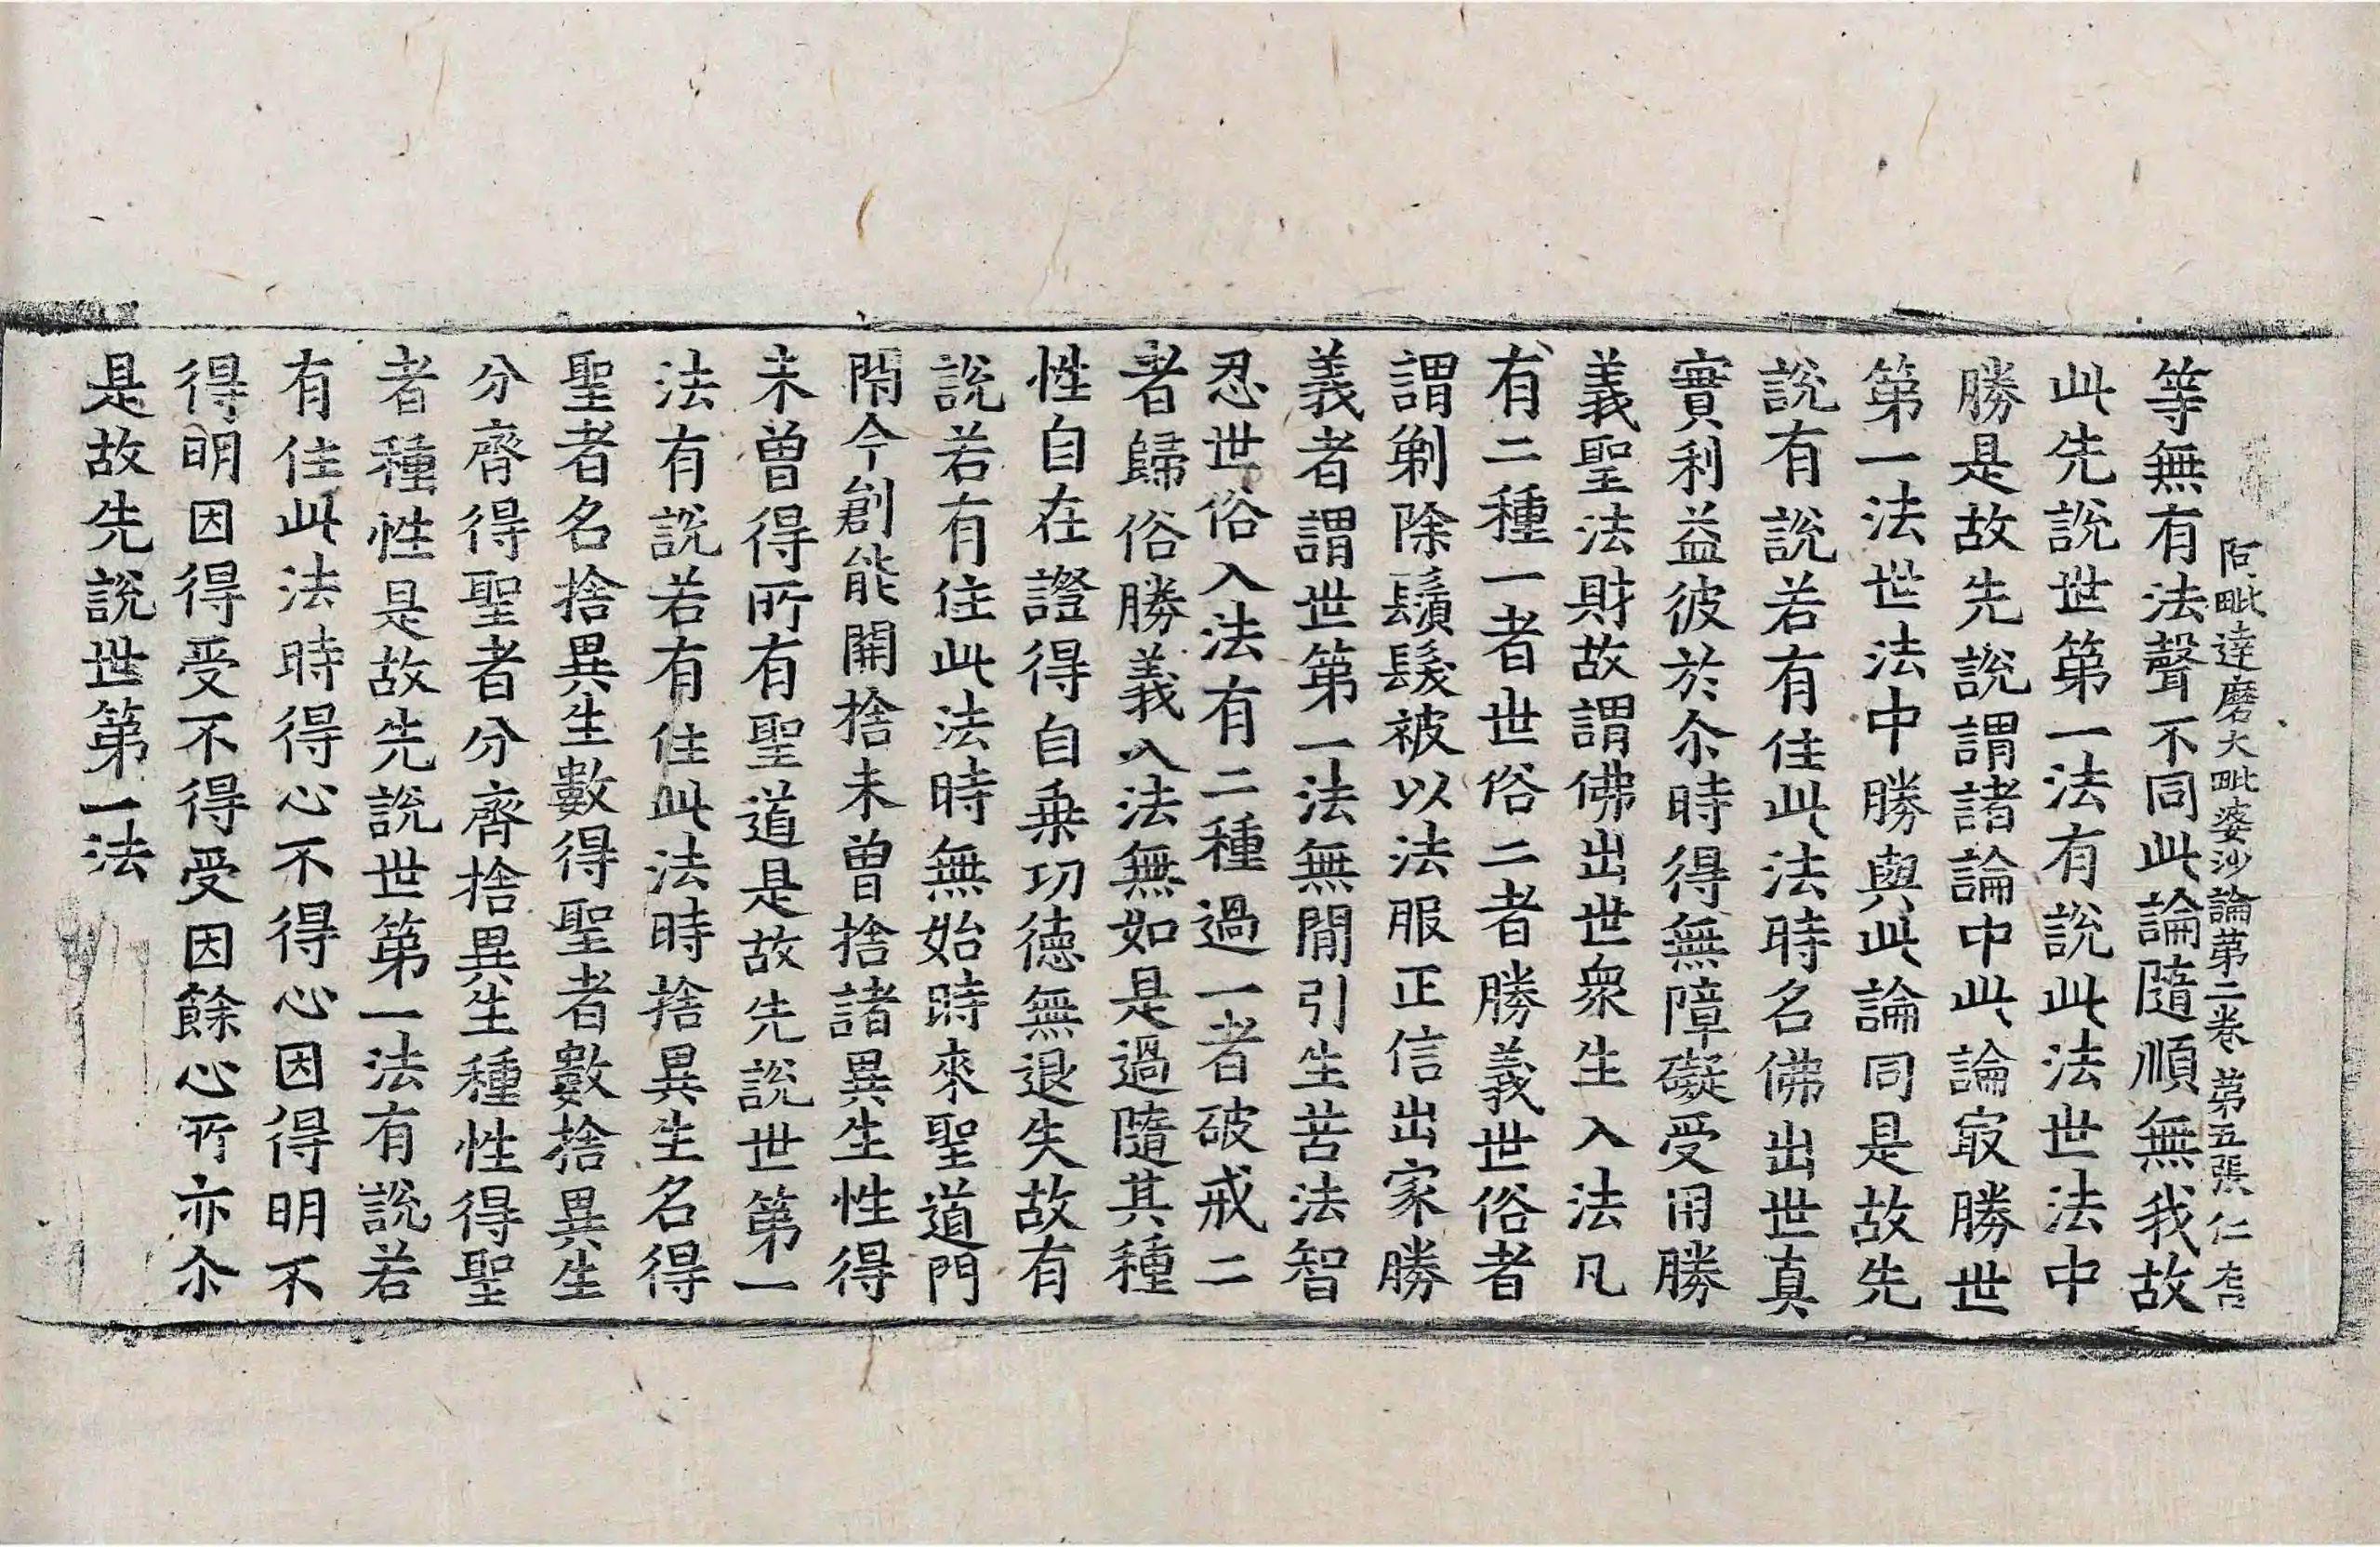 阿毗達磨大毗婆沙論第二卷 第五張 仁
等無有法聲不同此論隨順無我故
此先說世第一法有說此法世法中
勝是故先說謂諸論中此論㝡勝世
第一法世法中勝與此論同是故先
說有說若有住此法時名佛出世真
實利益彼於尒時得無障礙受用勝
義聖法財故謂佛出世衆生入法凡
有二種一者世俗二者勝義世俗者
謂剃除鬚髮被以法服正信出家勝
義者謂世第一法無閒引生苦法智
忍世俗入法有二種過一者破戒二
者歸俗勝義入法無如是過隨其種
性自在證得自乗功德無退失故有
說若有住此法時無始時來聖道門
閇今創能開捨未曾捨諸異生性得
未曾得所有聖道是故先說世第一
法有說若有住此法時捨異生名得
聖者名捨異生數得聖者數捨異生
分齊得聖者分齊捨異生種性得聖
者種性是故先說世第一法有說若
有住此法時得心不得心因得明不
得明因得受不得受因餘心所亦尒
是故先說世第一法